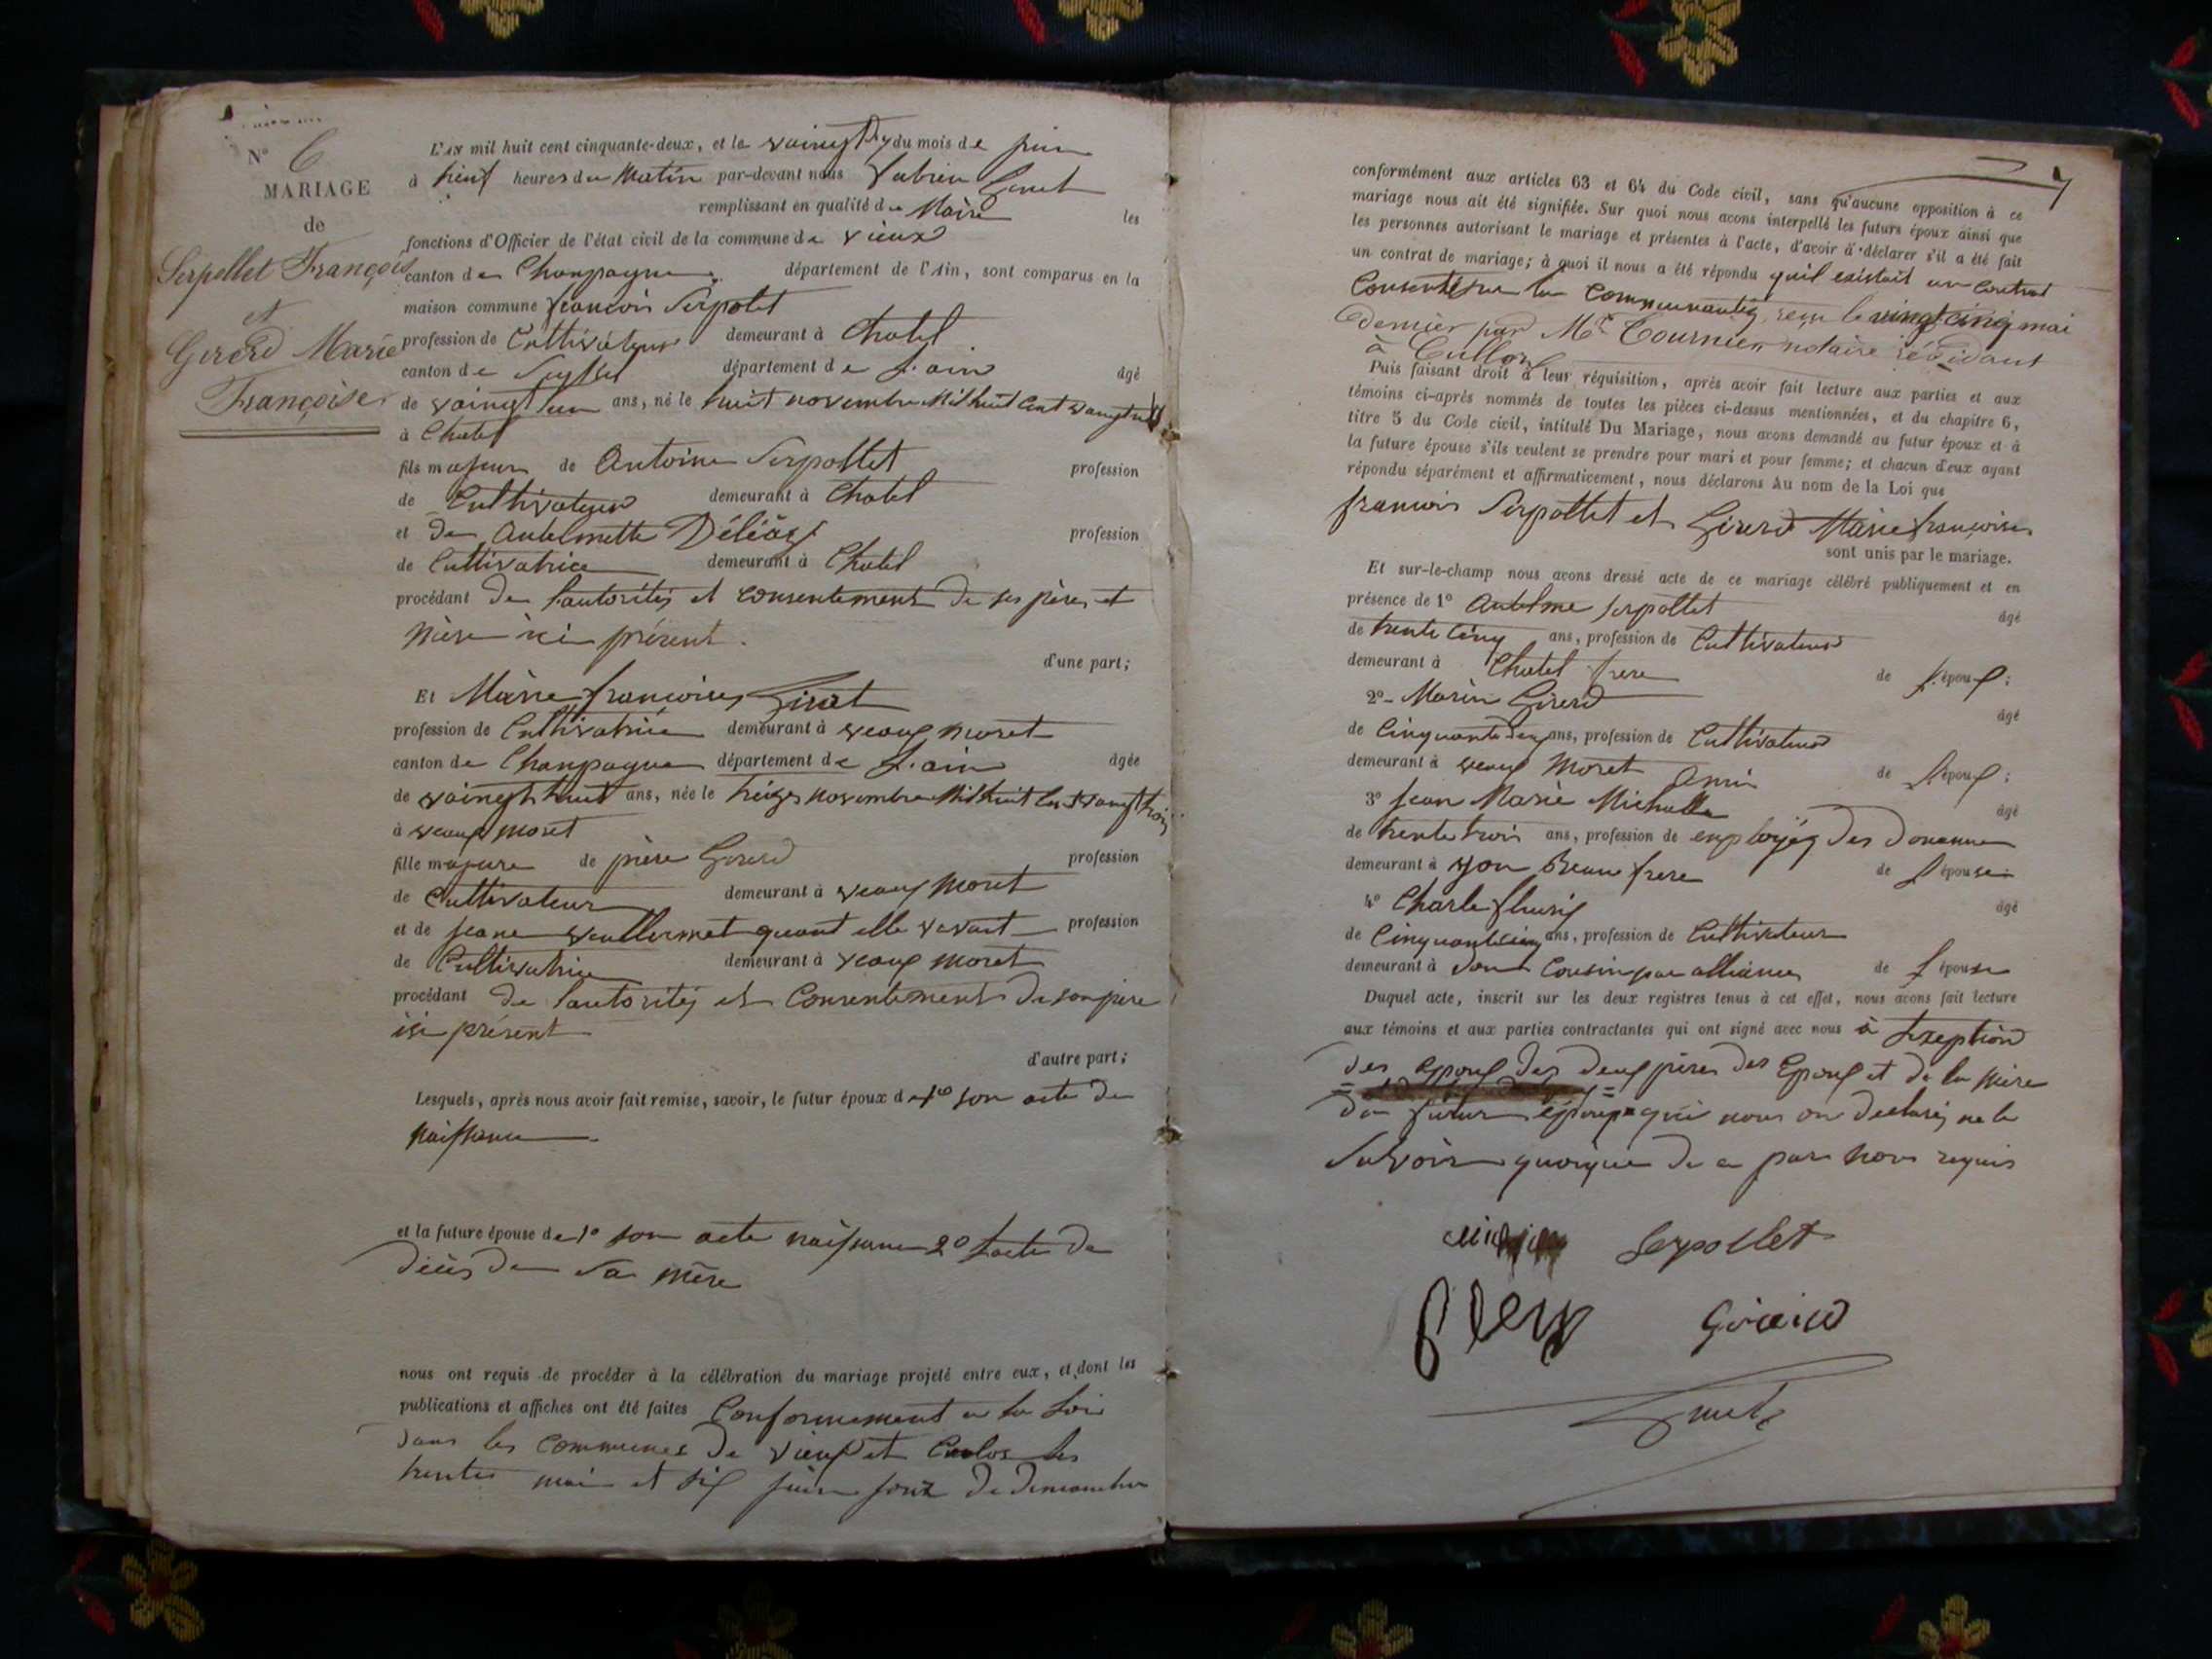 N° 6
MARIAGE
de
Serpollet François
et
Gererd Marie
Françoise
L'AN mil huit cent cinquante-deux, et le vaingt du mois de juin
à neuf heures du Matin par-devant nous
remplissant en qualité de Maire les
fonctions d'Officier de l'état civil de la commune de vieux
canton de Chanpagne département de l'Ain, sont comparus en la
maison commune francois Serpolet
profession de Cultivateur demeurant à Chatel
canton de Seyssel département de l'ain âgé
de vaingt huit ans, né le huit novembre Mil huit Cent
à Chatel
fils majeur de Antoine Serpollet profession
de Cultivateur demeurant à Chatel
et de Antelmette profession
de Cultivatrice demeurant à Chatel
procédant de l'autorités et consentement de ses pères et
Mère ici présent.
d'une part;
Et Marie francoise Girat
profession de Cultivatrice demeurant à veaux moret
canton de Chanpagne département de l'ain âgée
de vaingt huit ans, née le treize novembre Mil huit Cent vaingt trois
à veaux moret
fille majeure de pière Gererd profession
de Cultivateur demeurant à veaux moret
et de jeane vuillermet quant elle vivait profession
de Cultivatrice demeurant à veaux moret
procédant de l'autorités et Consentement de son père
ici présent
d'autre part;
Lesquels, après nous avoir fait remise, savoir, le futur époux de 1° son acte de
naissance
et la future épouse de 1° son acte naissance 2° l'acte de
décès de sa mère
nous ont requis de procéder à la célébration du mariage projeté entre eux, et dont les
publications et affiches ont été faites Conformement a la loi
dans les communes de vieux et les
trentes mai et six juin jour de dimanche
7
conformément aux articles 63 et 64 du Code civil, sans qu'aucune opposition à ce
mariage nous ait été signifiée. Sur quoi nous avons interpellé les futurs époux ainsi que
les personnes autorisant le mariage et présentes à l'acte, d'avoir à déclarer s'il a été fait
un contrat de mariage; à quoi il nous a été répondu quil existait un Contrat
sur la communautés reçu le vingt cinq mai
dernier par Me Tournier notaire résidant
à
Puis faisant droit à leur réquisition, après avoir fait lecture aux parties et aux
témoins ci-après nommés de toutes les pièces ci-dessus mentionnées, et du chapitre 6,
titre 5 du Code civil, intitulé Du Mariage, nous avons demandé au futur époux et à
la future épouse s'ils veulent se prendre pour mari et pour femme; et chacun d'eux ayant
répondu séparément et affirmativement, nous déclarons Au nom de la Loi que
francois Serpollet et Gererd Marie françoise
sont unis par le mariage.
Et sur-le-champ nous avons dressé acte de ce mariage célébré publiquement et en
présence de 1° Antelme serpollet âgé
de trente Cinq ans, profession de Cultivateur
demeurant à Chatel frere de l'époux;
2° Marin Gererd âgé
de Cinquante deux ans, profession de Cultivateur
demeurant à veaux Moret Ami de l'époux;
3° jean Marie âgé
de trente trois ans, profession de employés des Douanne
demeurant à Beau frere de l'épouse
4° Charle fleurij âgé
de Cinquante cinq ans, profession de Cultivateur
demeurant à Cousin par alliance de l'épouse
Duquel acte, inscrit sur les deux registres tenus à cet effet, nous avons fait lecture
aux témoins et aux parties contractantes qui ont signé avec nous à
des epoux des deux pères des Epoux et de la mère
du futur époux qui nous on declarés ne le
Savoir quoique de ce par nous requis
Serpollet
Girerd